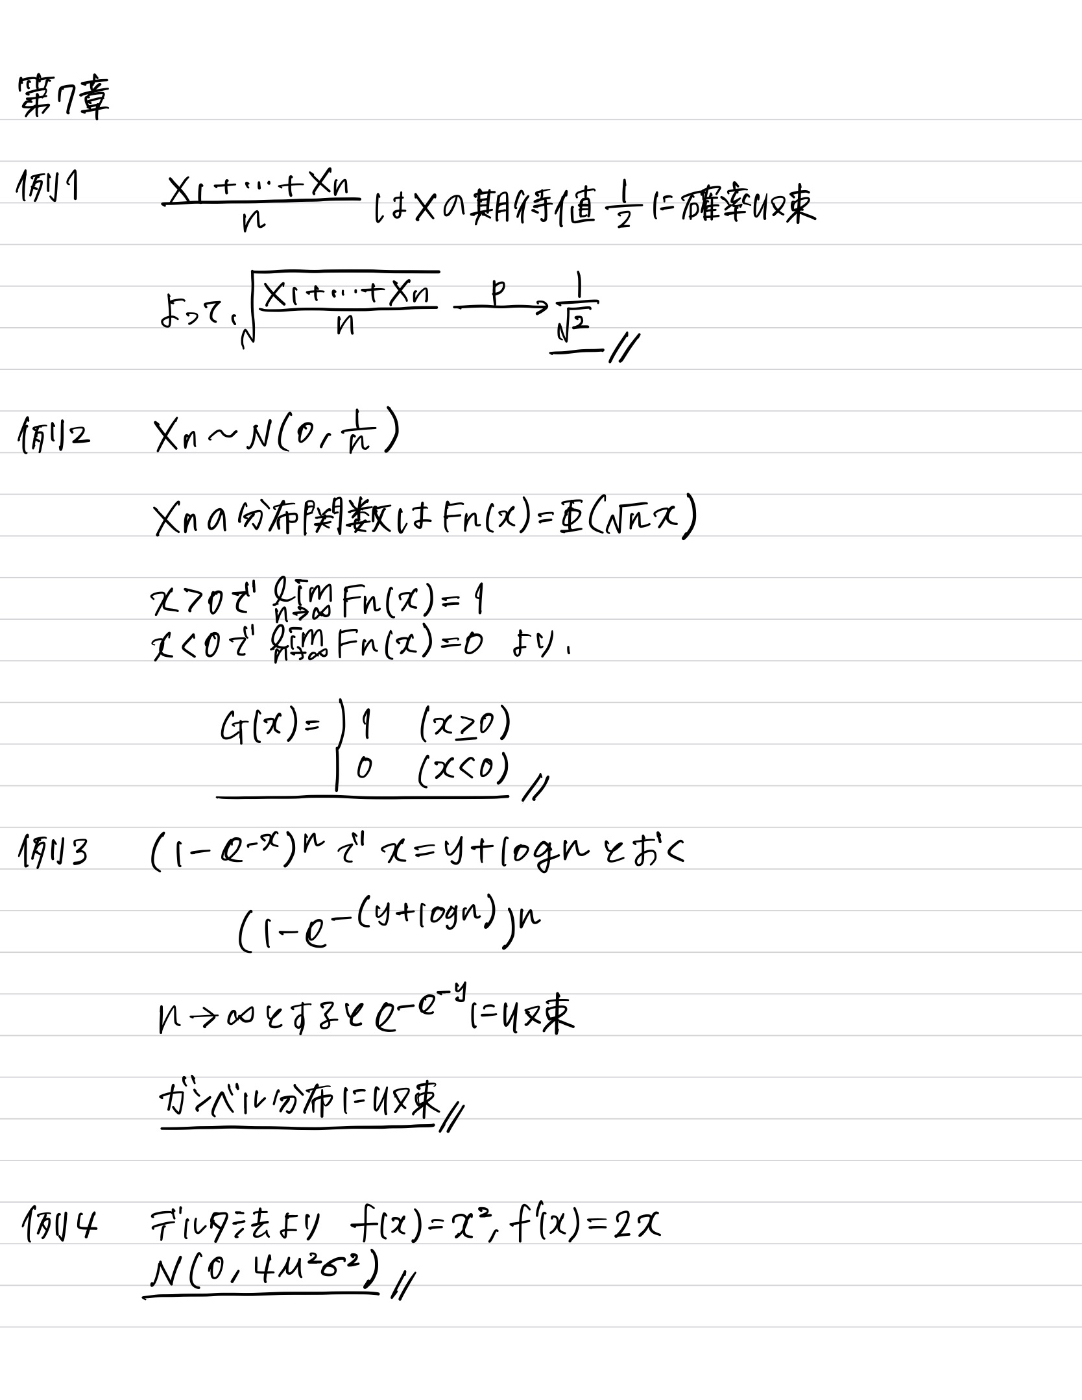 第7章
例1 (X1+…+Xn)/n はXの期待値 1/2 に確率収束
よって、√((X1+…+Xn)/n) →p 1/√2 //
例2 Xn ~ N(0, 1/n)
Xnの分布関数は Fn(x)=Φ(√n x)
x>0で lim n→∞ Fn(x)=1
x<0で lim n→∞ Fn(x)=0 より、
G(x)= { 1 (x≥0)
0 (x<0) //
例3 (1-e^-x)^n で x=y+logn とおく
(1-e^-(y+logn))^n
n→∞とすると e^-e^-y に収束
ガンベル分布に収束 //
例4 デルタ法より f(x)=x², f'(x)=2x
N(0, 4μ²σ²) //